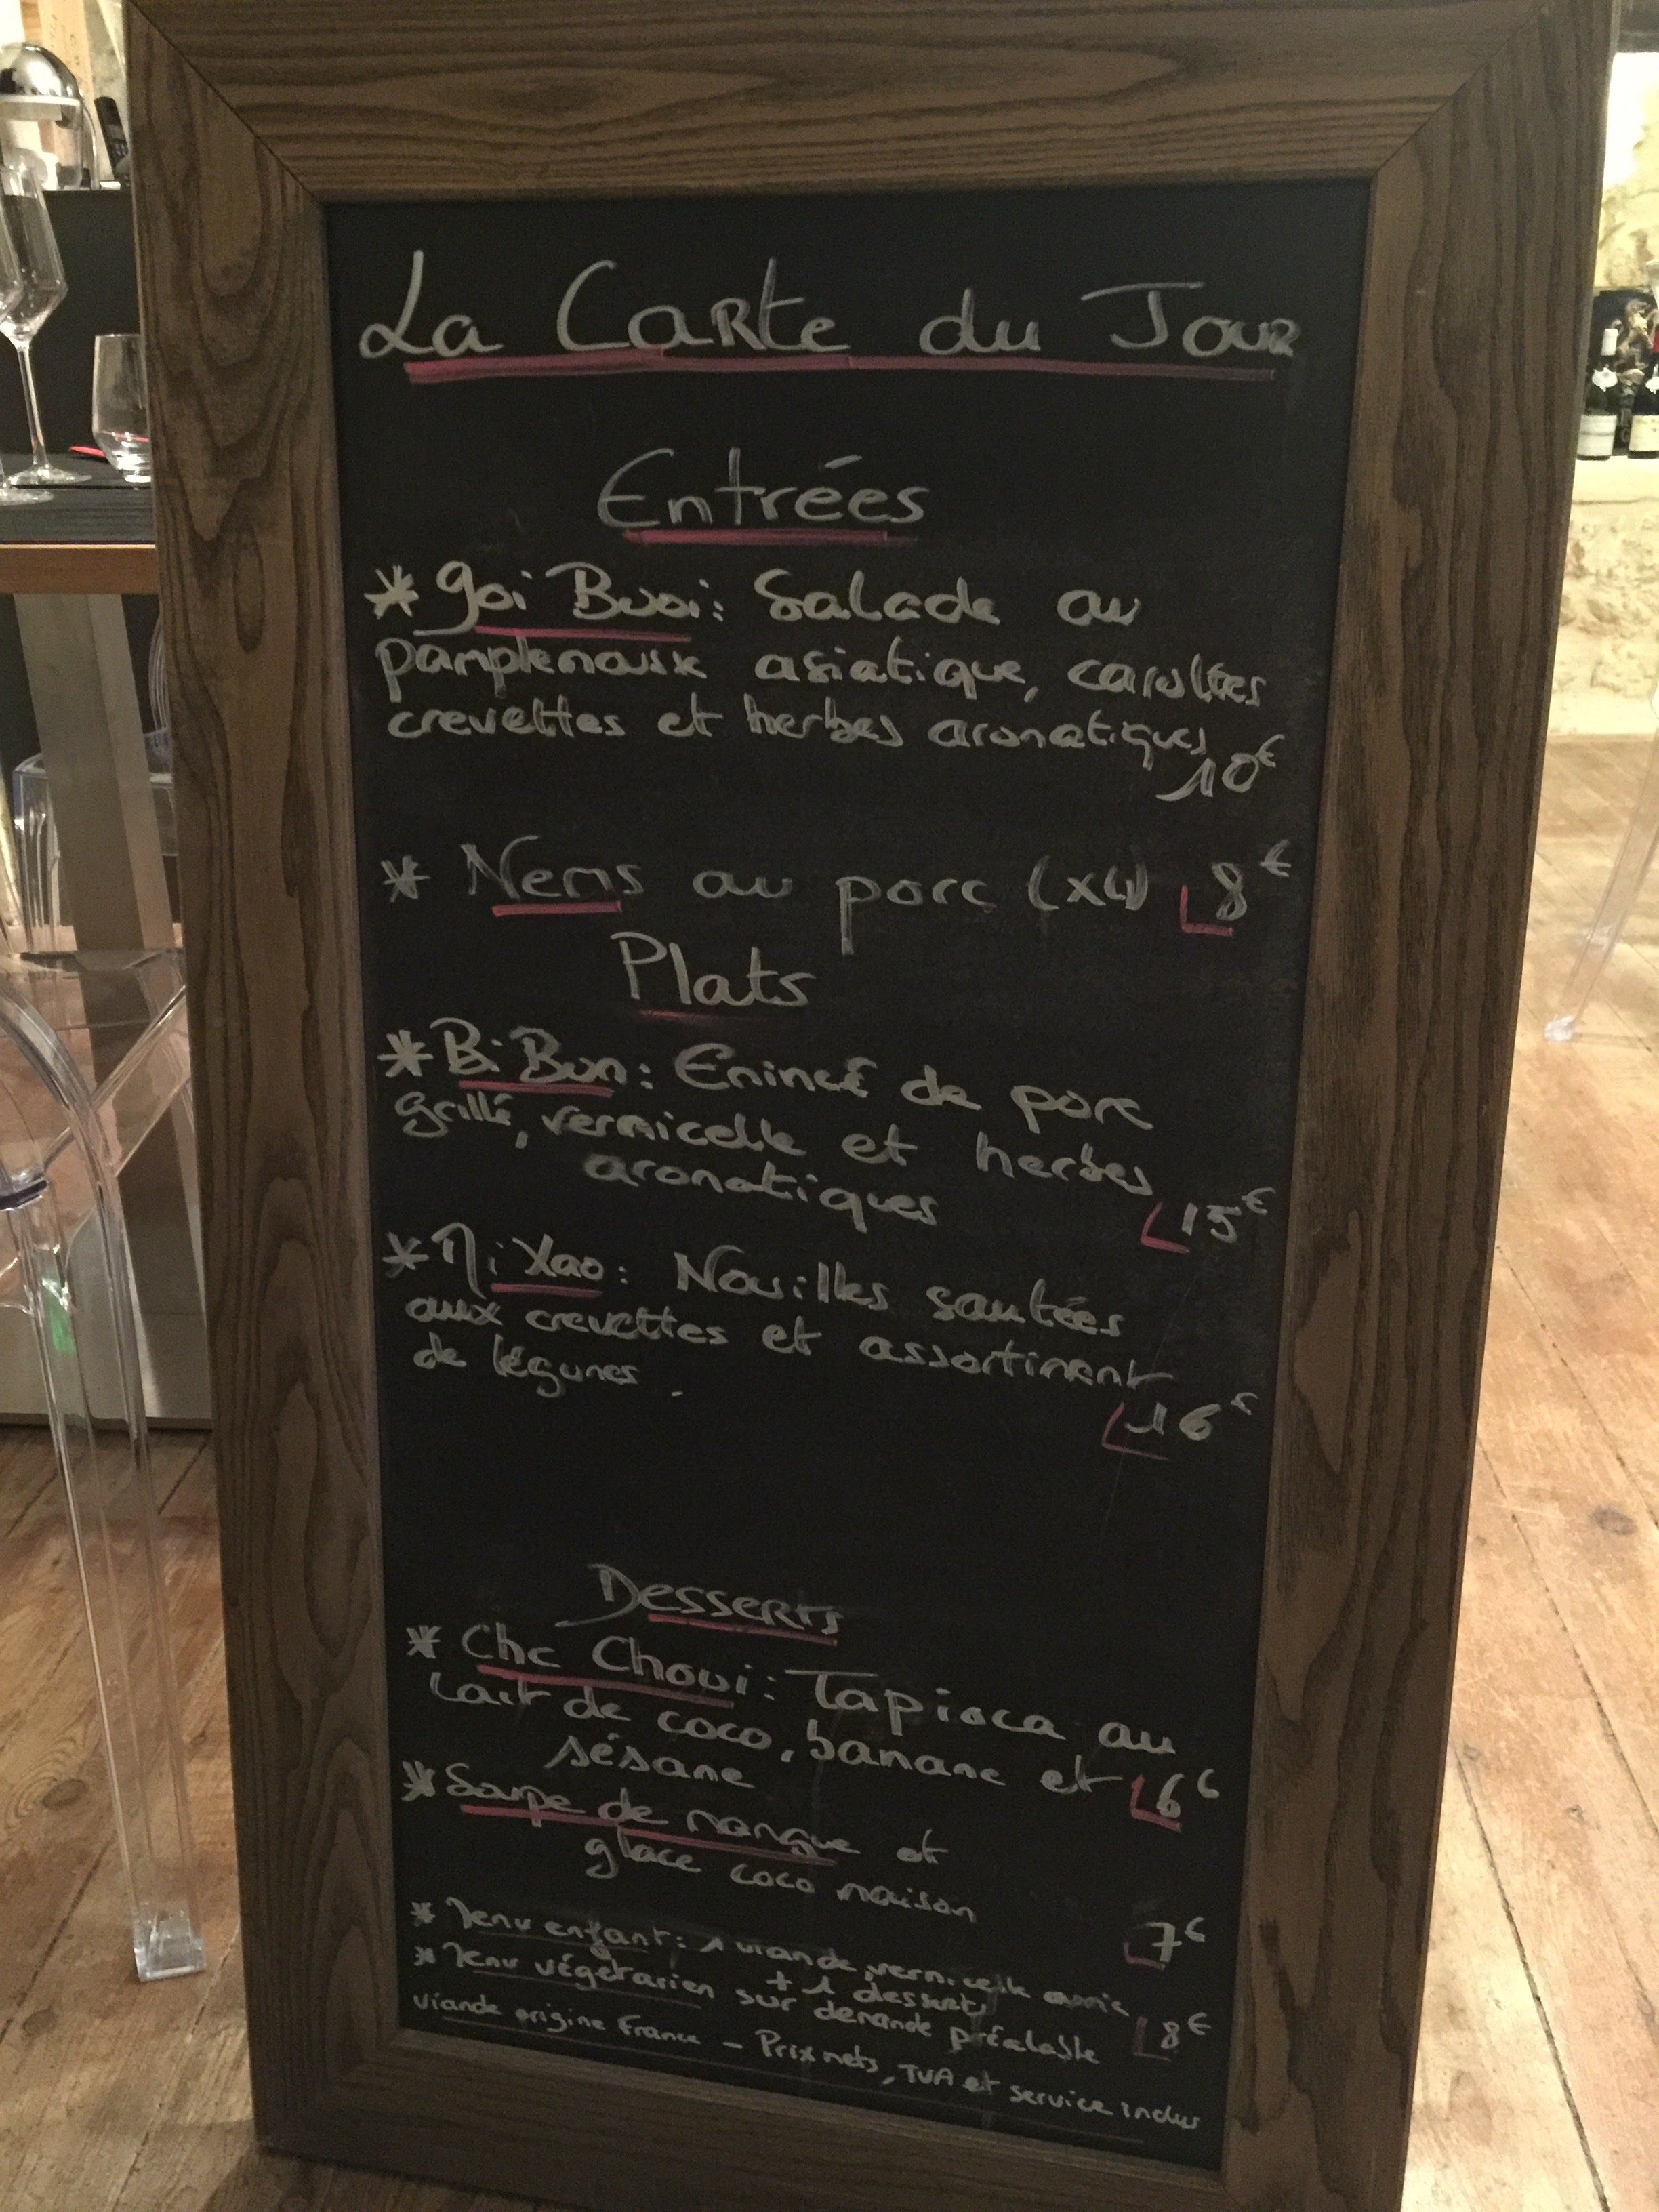 La Carte du Jour
Entrées
* Goi Buoi: Salade au
pamplemousse asiatique, carottes
crevettes et herbes aromatiques
10€
* Nems au porc (x4) 8€
Plats
* Bi Bun: Emincé de porc
grillé, vermicelle et herbes
aromatiques 15€
* Mi Xao: Nouilles sautées
aux crevettes et assortiment
de légumes.
16€
Desserts
* Che Choui: Tapioca au
Lait de coco, banane et 6€
sésame
* Soupe de mangue et
glace coco maison
7€
* Menu enfant: 1 viande, vermicelle
+ 1 dessert 8€
* Menu végétarien sur demande préalable
viande origine France - Prix nets, TVA et service inclus